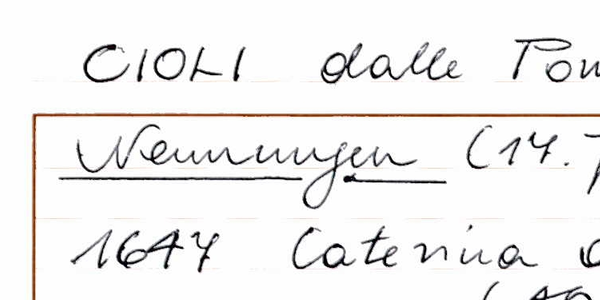 CIOLI dalle
Nennungen (17.
1647 Caterina